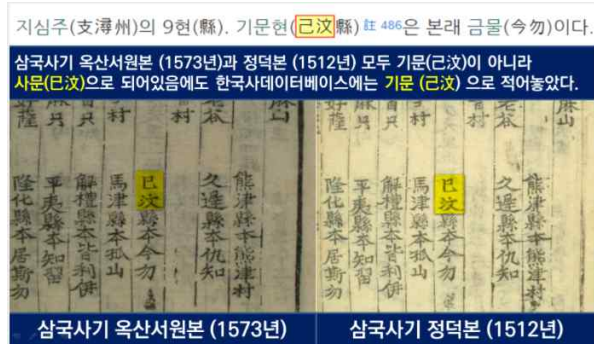 지심주(支潯州)의 9현(縣). 기문현(己汶縣) 註 486은 본래 금물(今勿)이다.
삼국사기 옥산서원본 (1573년)과 정덕본 (1512년) 모두 기문(己汶)이 아니라
사문(巳汶)으로 되어있음에도 한국사데이터베이스에는 기문 (己汶) 으로 적어놓았다.
熊津縣本熊津村
久遲縣本仇知
巳汶縣本今勿
馬津縣本孤山
解禮縣本皆利伊
平夷縣本知留
隆化縣本居斯勿
삼국사기 옥산서원본 (1573년)
熊津縣本熊津村
久遲縣本仇知
巳汶縣本今勿
馬津縣本孤山
解禮縣本皆利伊
平夷縣本知留
隆化縣本居斯勿
삼국사기 정덕본 (1512년)